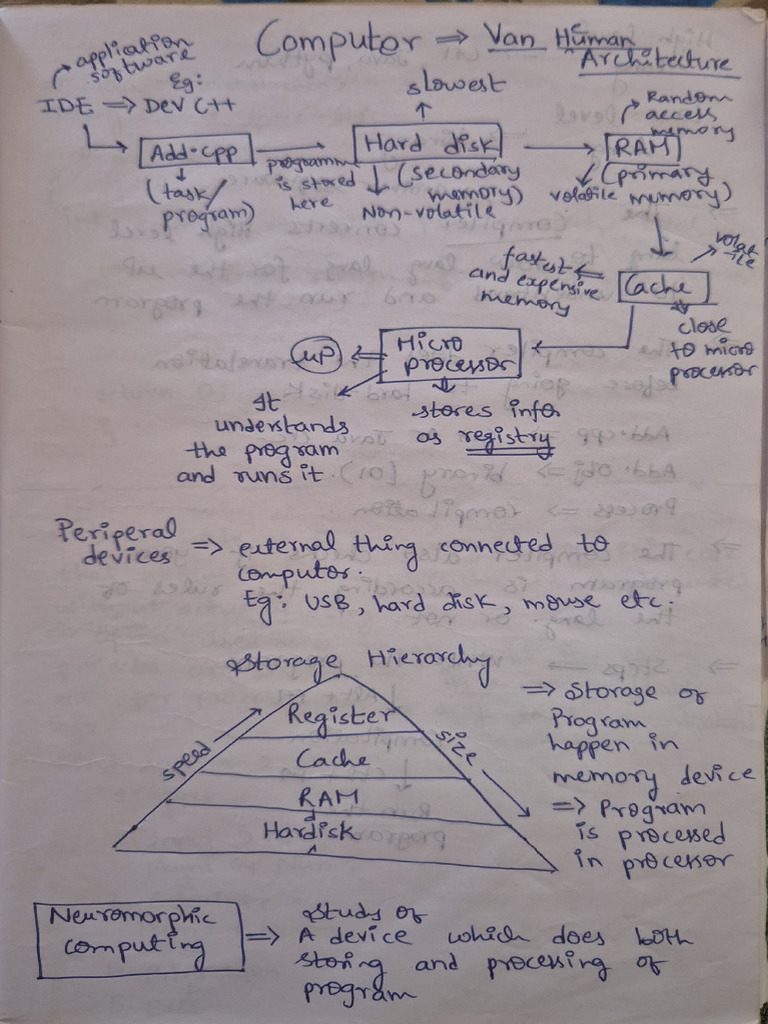 Computor ⇒ Van Human
Architecture
application
software
Eg:
IDE ⇒ Dev C++
Add.cpp
(task/
program)
programm
is stored
here
slowest
Hard disk
(secondary
memory)
Non-volatile
Random
access
memory
RAM
(primary
memory)
volatile
volat
-ile
Cache
fastest
and expensive
memory
close
to micro
processor
Micro
processor
μP
It
understands
the program
and runs it.
stores infor
as registry
Periperal
devices ⇒ external thing connected to
computor.
Eg: USB, hard disk, mouse etc.
Storage Hierarchy
speed
size
Register
Cache
RAM
Hardisk
⇒ Storage of
Program
happen in
memory device
⇒ Program
is processed
in processor
Neuromorphic
computing
⇒ Study of
A device which does both
storing and processing of
program